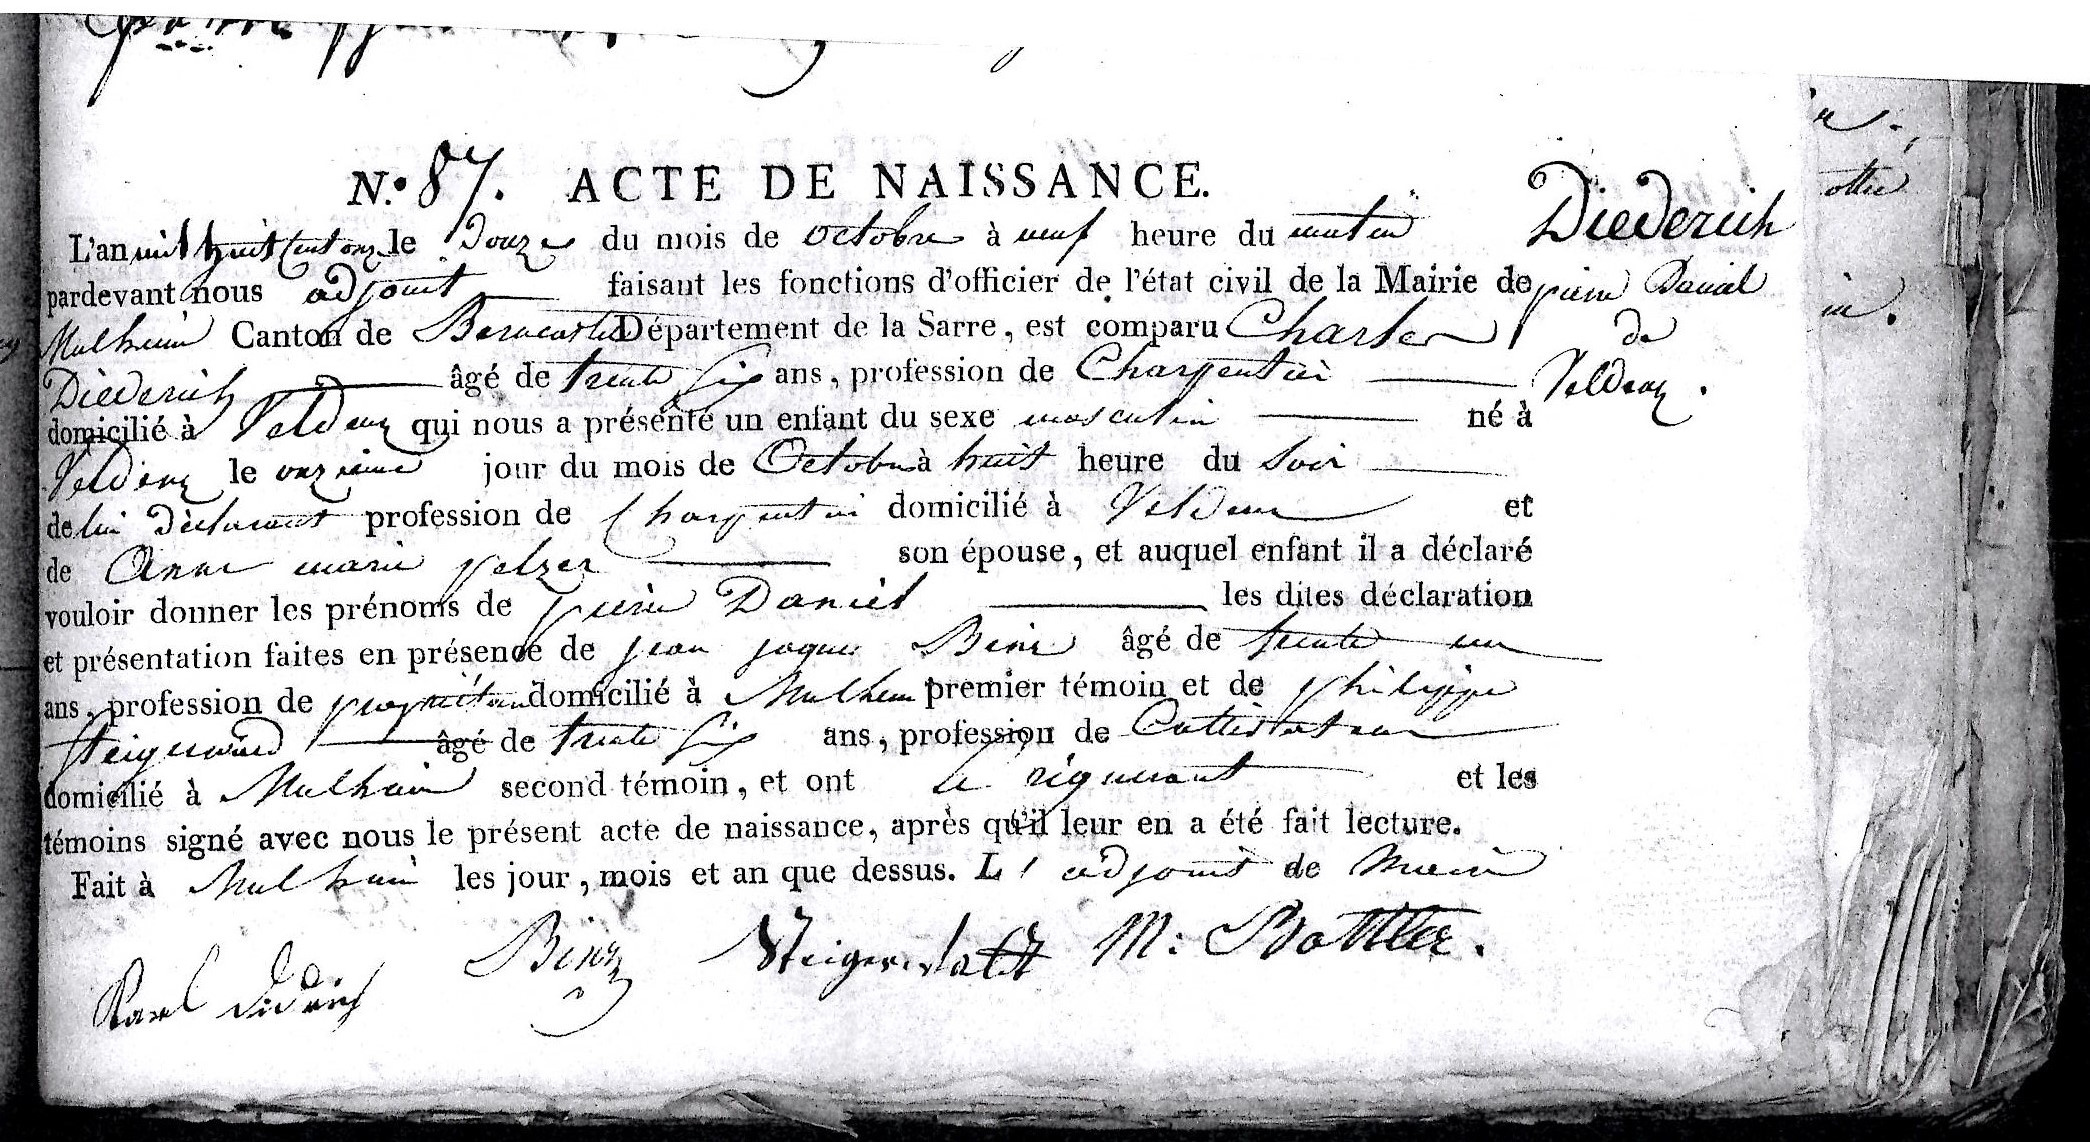 N.° 87. ACTE DE NAISSANCE.
L'an mil huit cent onze le Douze du mois de octobre à neuf heure du matin
pardevant nous adjoint faisant les fonctions d'officier de l'état civil de la Mairie de
Mulheim Canton de Berncastel Département de la Sarre, est comparu Charles
Diederich âgé de trente six ans, profession de Charpentier
domicilié à Veldenz qui nous a présenté un enfant du sexe masculin né à
Veldenz le onzieme jour du mois de Octobre à huit heure du Soir
de lui déclarant profession de Charpentier domicilié à Veldenz et
de Anne marie pelzer son épouse, et auquel enfant il a déclaré
vouloir donner les prénoms de pierre Daniel les dites déclaration
et présentation faites en présence de jean jaques Binz âgé de trente un
ans, profession de propriétaire domicilié à Mulheim premier témoin et de philippe
âgé de trente six ans, profession de Cultivateur
domicilié à Mulheim second témoin, et ont le requerant et les
témoins signé avec nous le présent acte de naissance, après qu'il leur en a été fait lecture.
Fait à Mulheim les jour, mois et an que dessus. L' adjoint de Maire
Karl Didrich Binz M: Bottler.
Diederich
pierre Daniel
de
Veldenz.